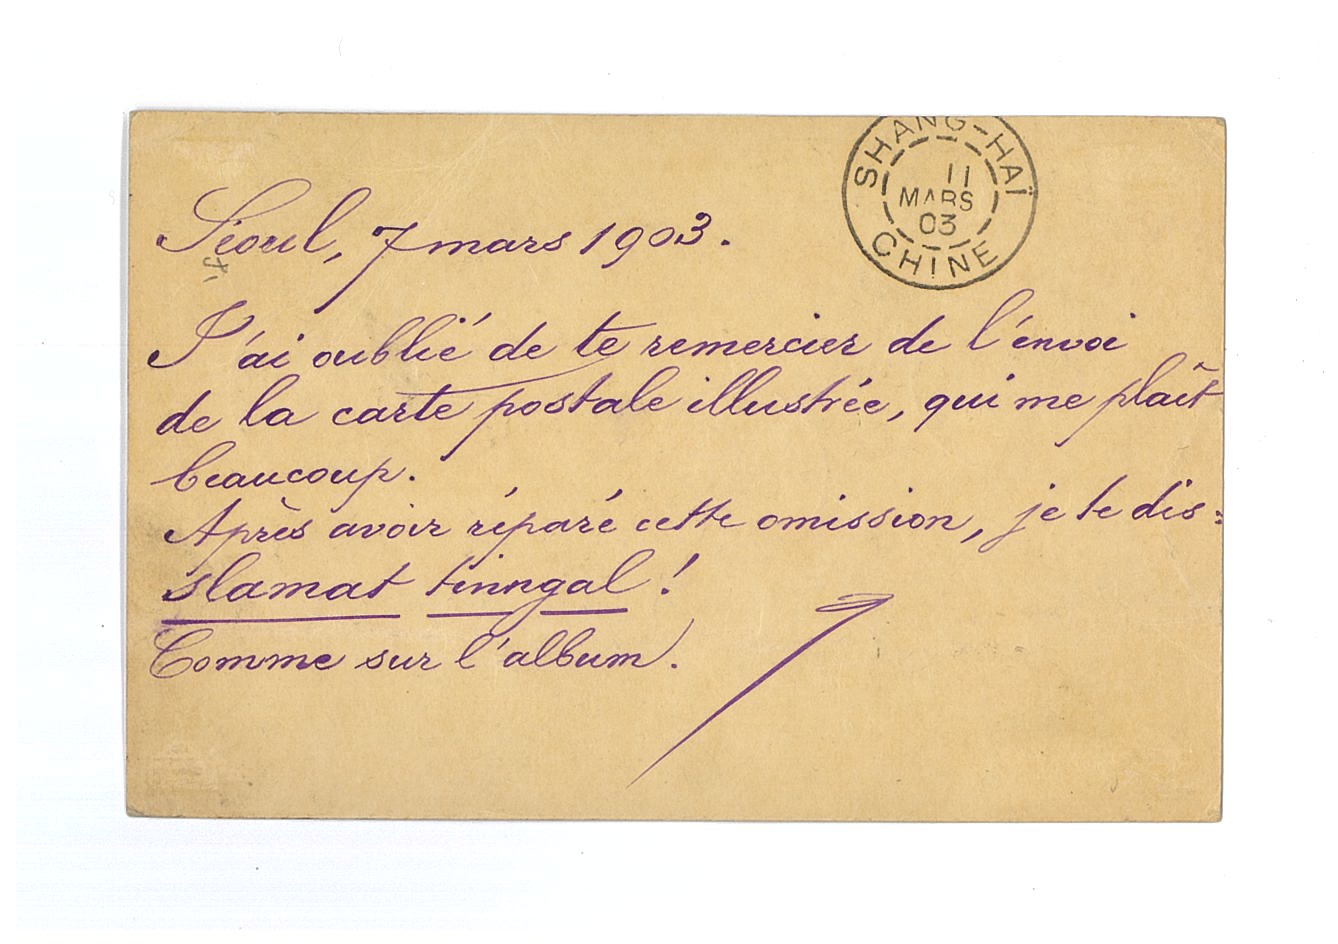 SHANG-HAÏ
11
MARS
03
CHINE
Séoul, 7 mars 1903.
J'ai oublié de te remercier de l'énvoi
de la carte postale illustrée, qui me plaît
beaucoup.
Après avoir réparé cette omission, je te dis:
slamat tinngal!
Comme sur l'album.